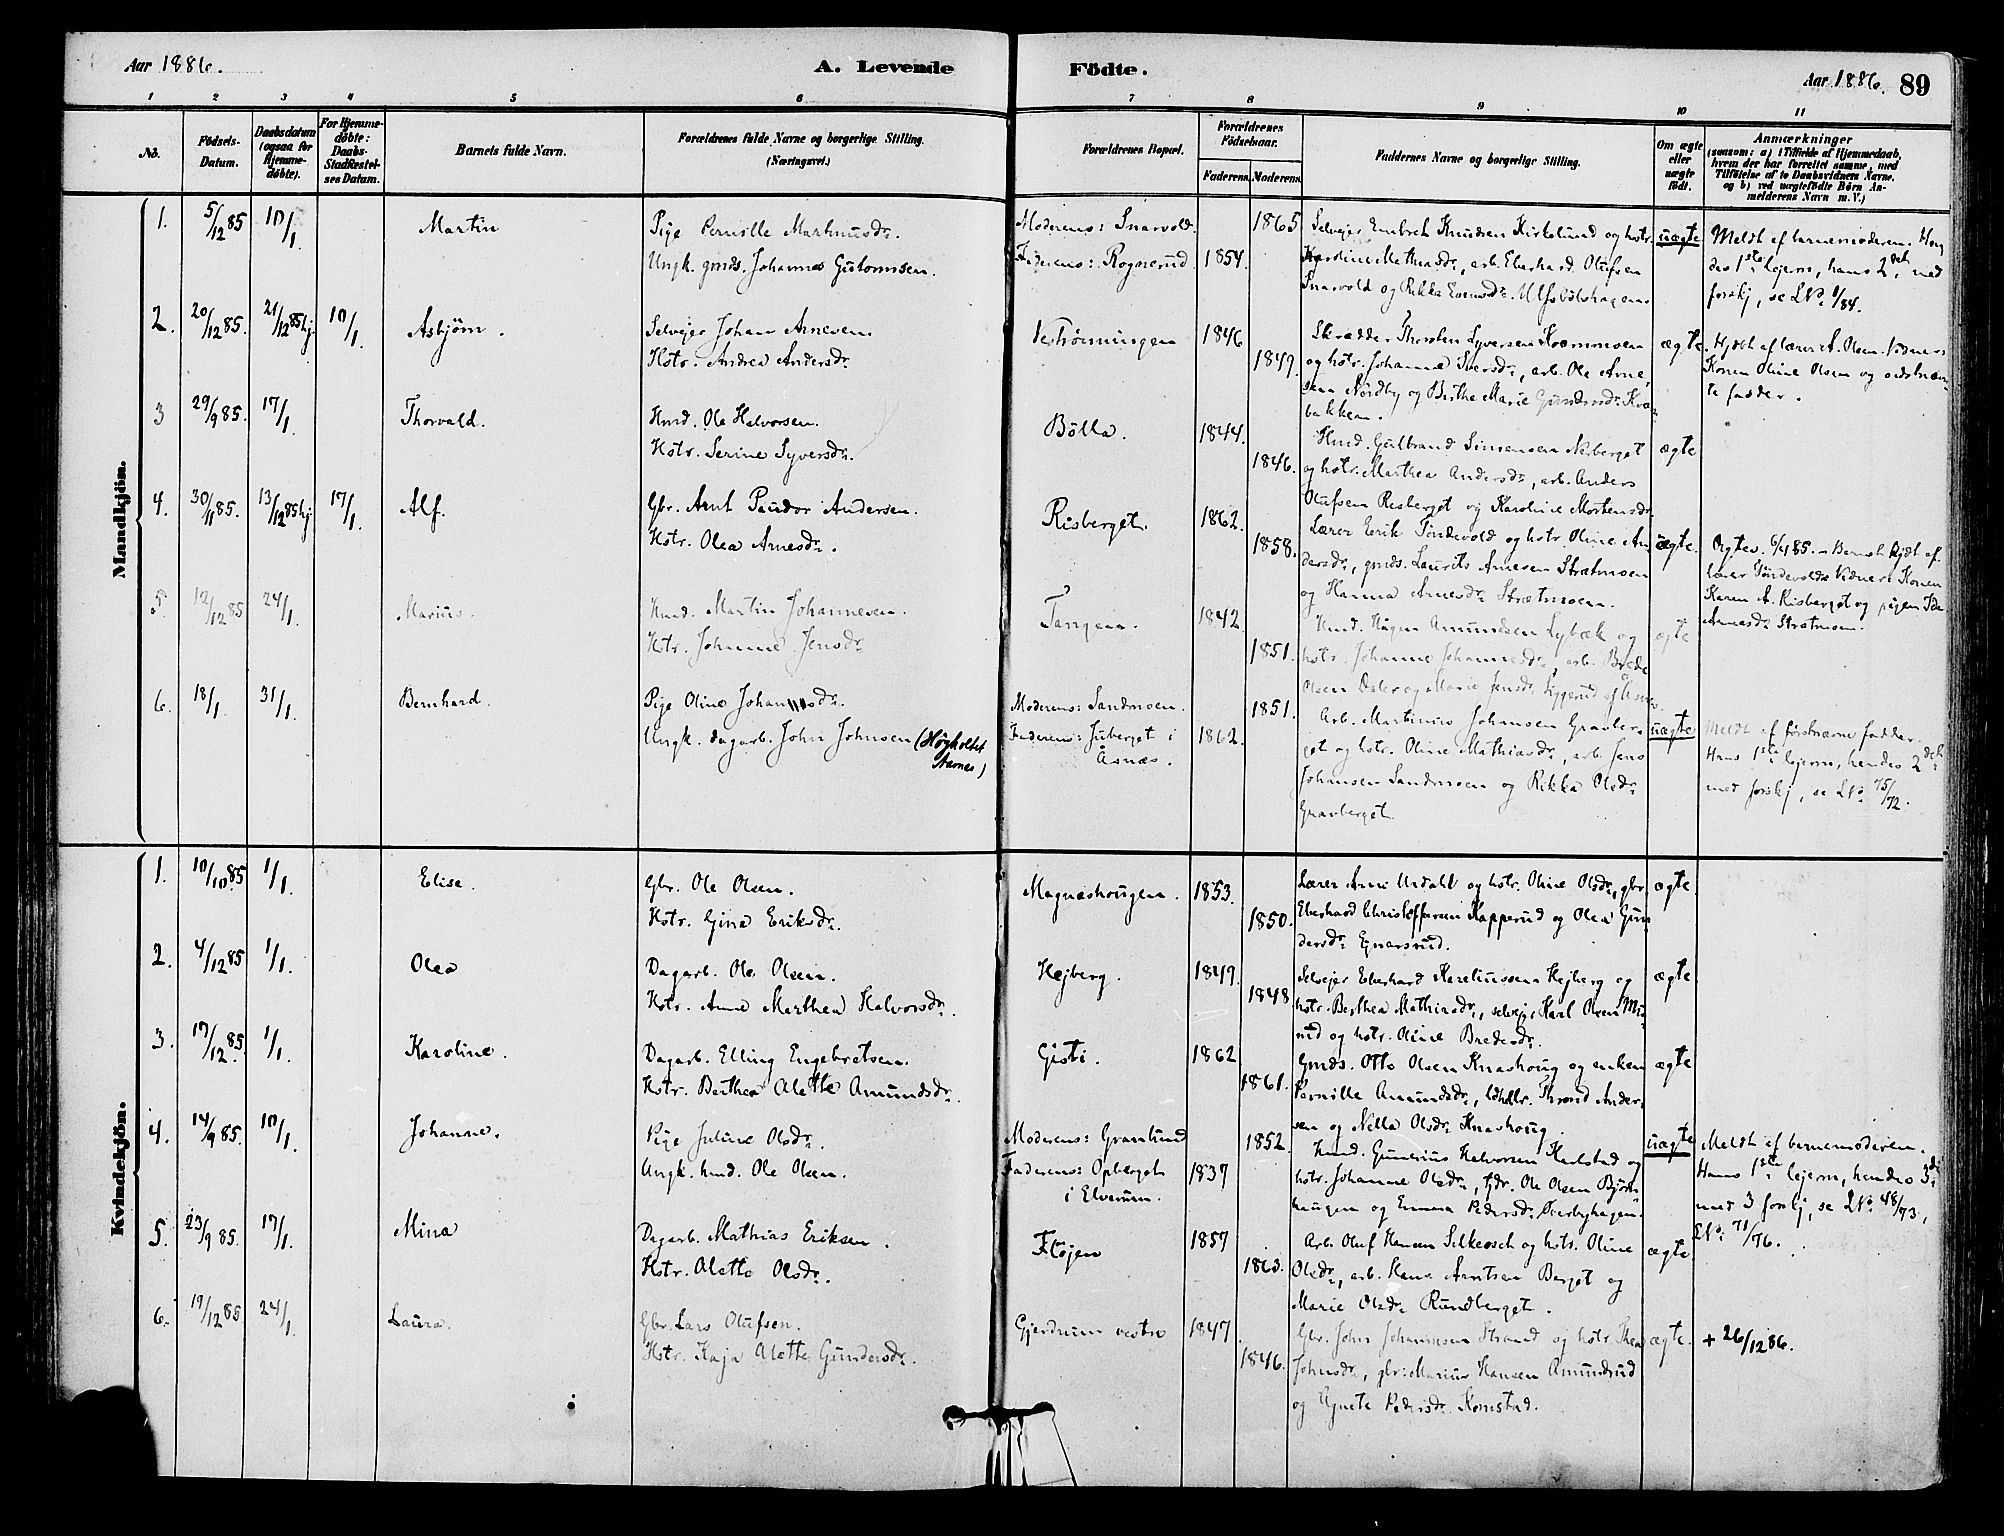 Aar 1886.
A. Levende Födte.
Aar 1886. 89
1 2 3 4 5 6 7 8 9 10 11
No.
Födsels-Datum.
Daabsdatum (ogsaa for Hjemme-døbte).
For Hjemme-døbte: Daabs-Stadfæstel-ses Datum.
Barnets fulde Navn.
Forældrenes fulde Navne og borgerlige Stilling.
(Næringsvei.)
Forældrenes Bopæl.
Forældrenes Födselsaar.
Faderens. Moderens.
Faddernes Navne og borgerlige Stilling.
Om ægte eller uægte født.
Anmærkninger
(saasom: a) i Tilfælde af Hjemmedaab, hvem der har forrettet samme, med Tilföielse af to Daabsvidners Navne. og b) ved uægtefødte Börn An-melderens Navn m.V.)
Mandkjön.
1. 5/12 85 10/1. Martin
Pige Pernille Markusdr.
Ungk. gmds. Johannes Guttormsen.
Moderens: Snarvold. 1865
Faderens: Rognerud 1854.
Selvejer Embret Knudsen Kirkelund og hstr.
Karoline Mathiasdr., arb. Eberhard Olufsen
Snarvold og Rikka Evensdr. Ulfsbölshagen
uægte
Meldt af barnemoderen. Hen
des 1ste lejerm., hans 2det med
forskj, se LNo. 1/84.
2. 20/12 85. 21/12 85 hj 10/1. Asbjörn.
Selvejer Johan Arnesen
Hstr. Andrea Andersdr.
1846
1849.
Skrædder Thorsten Syversen Kvæmmoen
og hstr. Johanne Iversdr., arb. Ole Arne
sen Nordby og Birthe Marie Gundersdr. Kvæ
bakken.
ægte
Hjdbt af lærer A. Olsen. Vidner
Konen Oline Olsen og sidstnævn
te fadder.
3 29/9 85. 17/1. Thorvald.
Hmd. Ole Halvorsen.
Hstr. Serine Syversdr.
Bölla. 1844.
1846.
Hmd. Gulbrand Simensen Næberget
og hstr. Marthea Andersdr., arb. Anders
Olufsen Risberget og Karoline Mortensdr.
ægte
4. 30/11 85. 13/12 85 hj 17/1. Alf.
Gbr. Arnt Peudor Andersen.
Hstr. Olea Arnesdr.
Risberget. 1862.
1858.
Lærer Erik Töndevold og hstr. Oline An
dersdr., gmds. Laurits Arnesen Strætmoen
og Hanna Arnesdr. Strætmoen.
ægte.
Ægtev. 6/4 85. — Barnet hjdbt af
lærer Töndevold. Vidner: Konen
Karen A. Risberget og pigen Ida
Arnesdr. Strætmoen.
5. 12/12 85 24/1. Marius.
Hmd. Martin Johannesen.
Hstr. Johanne Jensdr.
Tangen. 1842.
1851.
Hmd. Hågen Amundsen Lybæk og
hstr. Johanne Johannesdr., arb. Brede
Olsen Dæler og Marie Jensdr. Liggerud af Åsnes.
ægte
6. 18/1. 31/1. Bernhard.
Pige Oline Johannsdr.
Ungk. dagarb. John Johnsen (Høgholtet Aasnes)
Moderens: Sandmoen. 1851.
Faderens: Juberget i Åsnæs. 1862.
Arb. Martinius Johansen Gravber
get og hstr. Oline Mathiasdr., arb. Jens
Johansen Sandmoen og Rikka Olsdr.
Gravberget
uægte
Meldt af förstnævne fadder.
Hans 1ste lejerm, hendes 2det
med forskj, se LNo. 75/72.
Kvindekjön.
1. 10/10 85 1/1. Elise.
Gbr. Ole Olsen.
Hstr. Gina Eriksdr.
Magnashougen. 1853.
1850.
Lærer Arne Urdahl og hstr. Oline Olsdr., gbr.
Eberhard Christoffersen Kapperud og Olea Gun
dersdr. Ejnarsrud.
ægte
2. 4/12 85 1/1. Olea
Dagarb. Ole Olsen.
Hstr. Anne Marthea Halvorsdr.
Hejberg. 1849.
1848
Selvejer Eberhard Kareliussen Hejberg og
hstr. Berthea Mathiasdr., selvejer Karl Olsen Mo
rud og hstr. Oline Bredesdr.
ægte
3. 17/12 85. 1/1. Karoline.
Dagarb. Elling Engebretsen.
Hstr. Berthea Alette Amundsdr.
Gisti. 1862
1861.
Gmds. Otto Olsen Knashoug og enken
Pernille Amundsdr., Thrond Ander
sen og Nilla Olsdr. Knashoug.
ægte
4. 14/9 85. 10/1. Johanne.
Pige Juline Olsdr.
Ungk. hmd. Ole Olsen.
Moderens: Granlund 1852.
Faderens: Opberget i Elverum. 1837
Hmd. Gunerius Halvorsen Karlstad og
hstr. Johanne Olsdr., fdr. Ole Olsen Björn
haugen og Emma Pedersdr.
uægte
Meldt af barnemoderen.
Hans 1ste lejerm, hendes 3die
med 3 forskj, se LNo. 48/73,
LNo. 71/76.
5. 23/9 85. 17/1. Mina
Dagarb. Mathias Eriksen.
Hstr. Alette Olsdr.
Flöjen 1857
1863.
Arb. Oluf Hansen Silkeosch og hstr. Oline
Olsdr., arb. Hans Arntsen Berget og
Marie Olsdr. Rundberget.
ægte
6. 19/12 85. 24/1. Laura.
Gbr. Lars Olufsen.
Hstr. Kaja Alette Gundersdr.
Gjerdrum vestre 1847.
1846.
Gbr. John Johannesen Strand og hstr. Thea
Johnsdr., gbr. Marius Hansen Amundrud
og Agnete Pedersdr. Komstad.
ægte.
+ 26/12 86.